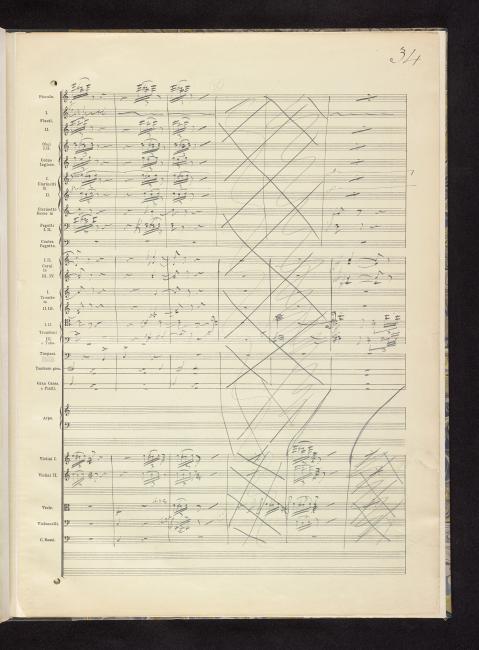 34
Piccolo.
I.
Flauti.
II.
Oboi
I.II.
Corno
Inglese.
I.
Clarinetti
II.
Clarinetto
Basso
Fagotti
I. II.
Contra
Fagotto.
I. II.
Corni
III. IV.
I.
Trombe
II. III.
I. II.
Tromboni
III.
e Tuba.
Timpani.
Gran Cassa.
e Piatti.
Arpa.
Violini I.
Violini II.
Viole.
Violoncelli.
C. Bassi.